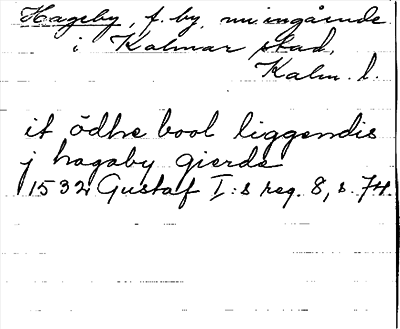 Hageby, f. by, nu ingående
i Kalmar stad,
Kalm. l.
it ödhe bool liggendis
j hagaby gierde
1532 Gustaf I:s reg. 8, s. 74.